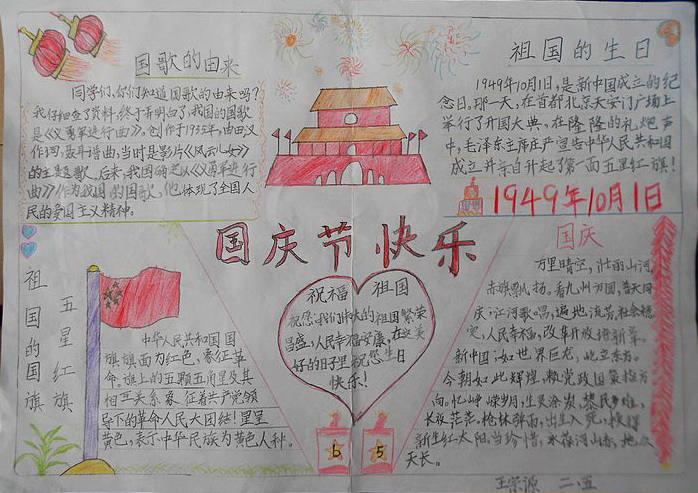 国歌的由来
同学们,你们知道国歌的由来吗?
我仔细查了资料,终于弄明白了,我国的国歌
是《义勇军进行曲》,创作于1935年,由田汉
作词,聂耳谱曲,当时是影片《风云儿女》
的主题歌,后来,我国确定以《义勇军进行
曲》作为我国的国歌,他体现了全国人
民的爱国主义精神。
祖国的生日
1949年10月1日,是新中国成立的纪
念日,那一天,在首都北京天安门广场上
举行了开国大典,在隆隆的礼炮声
中,毛泽东主席庄严宣告中华人民共和国
成立并亲自升起了第一面五星红旗!
1949年10月1日
国庆节快乐
祖国的国旗
五星红旗
中华人民共和国国
旗旗面为红色,象征革
命。旗上的五颗五角星及其
相互关系象征着共产党领
导下的革命人民大团结!星呈
黄色,表示中华民族为黄色人种。
祝福 祖国
祝您:我们伟大的祖国繁荣
昌盛,人民幸福安康,在这美
好的日子里祝您生日
快乐!
6 5
国庆
万里晴空,壮丽山河,
赤旗飘扬。看九州方圆,普天同
庆;江河歌唱,遍地流芳,社会稳
定,人民幸福,改革开放谱新章。
新中国,如世界巨龙,屹立东方。
今朝如此辉煌,赖党政国策指方
向。忆峥嵘岁月,生灵涂炭,黎民多难,
长夜茫茫。枪林弹雨,出生入死,换得
新生红太阳,当珍惜,永葆河山赤,地久
天长。
王宗源 二、五